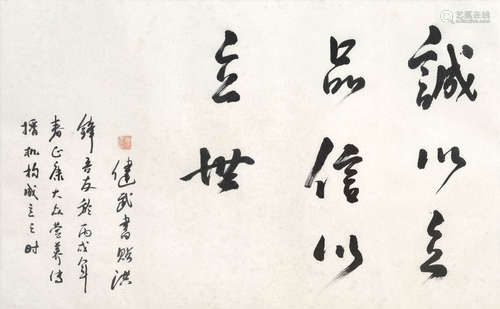 誠以立
品信以
立世
健武書贈洪
鋒吾友於丙戌年
春正康大众營养傳
播机构成立之时